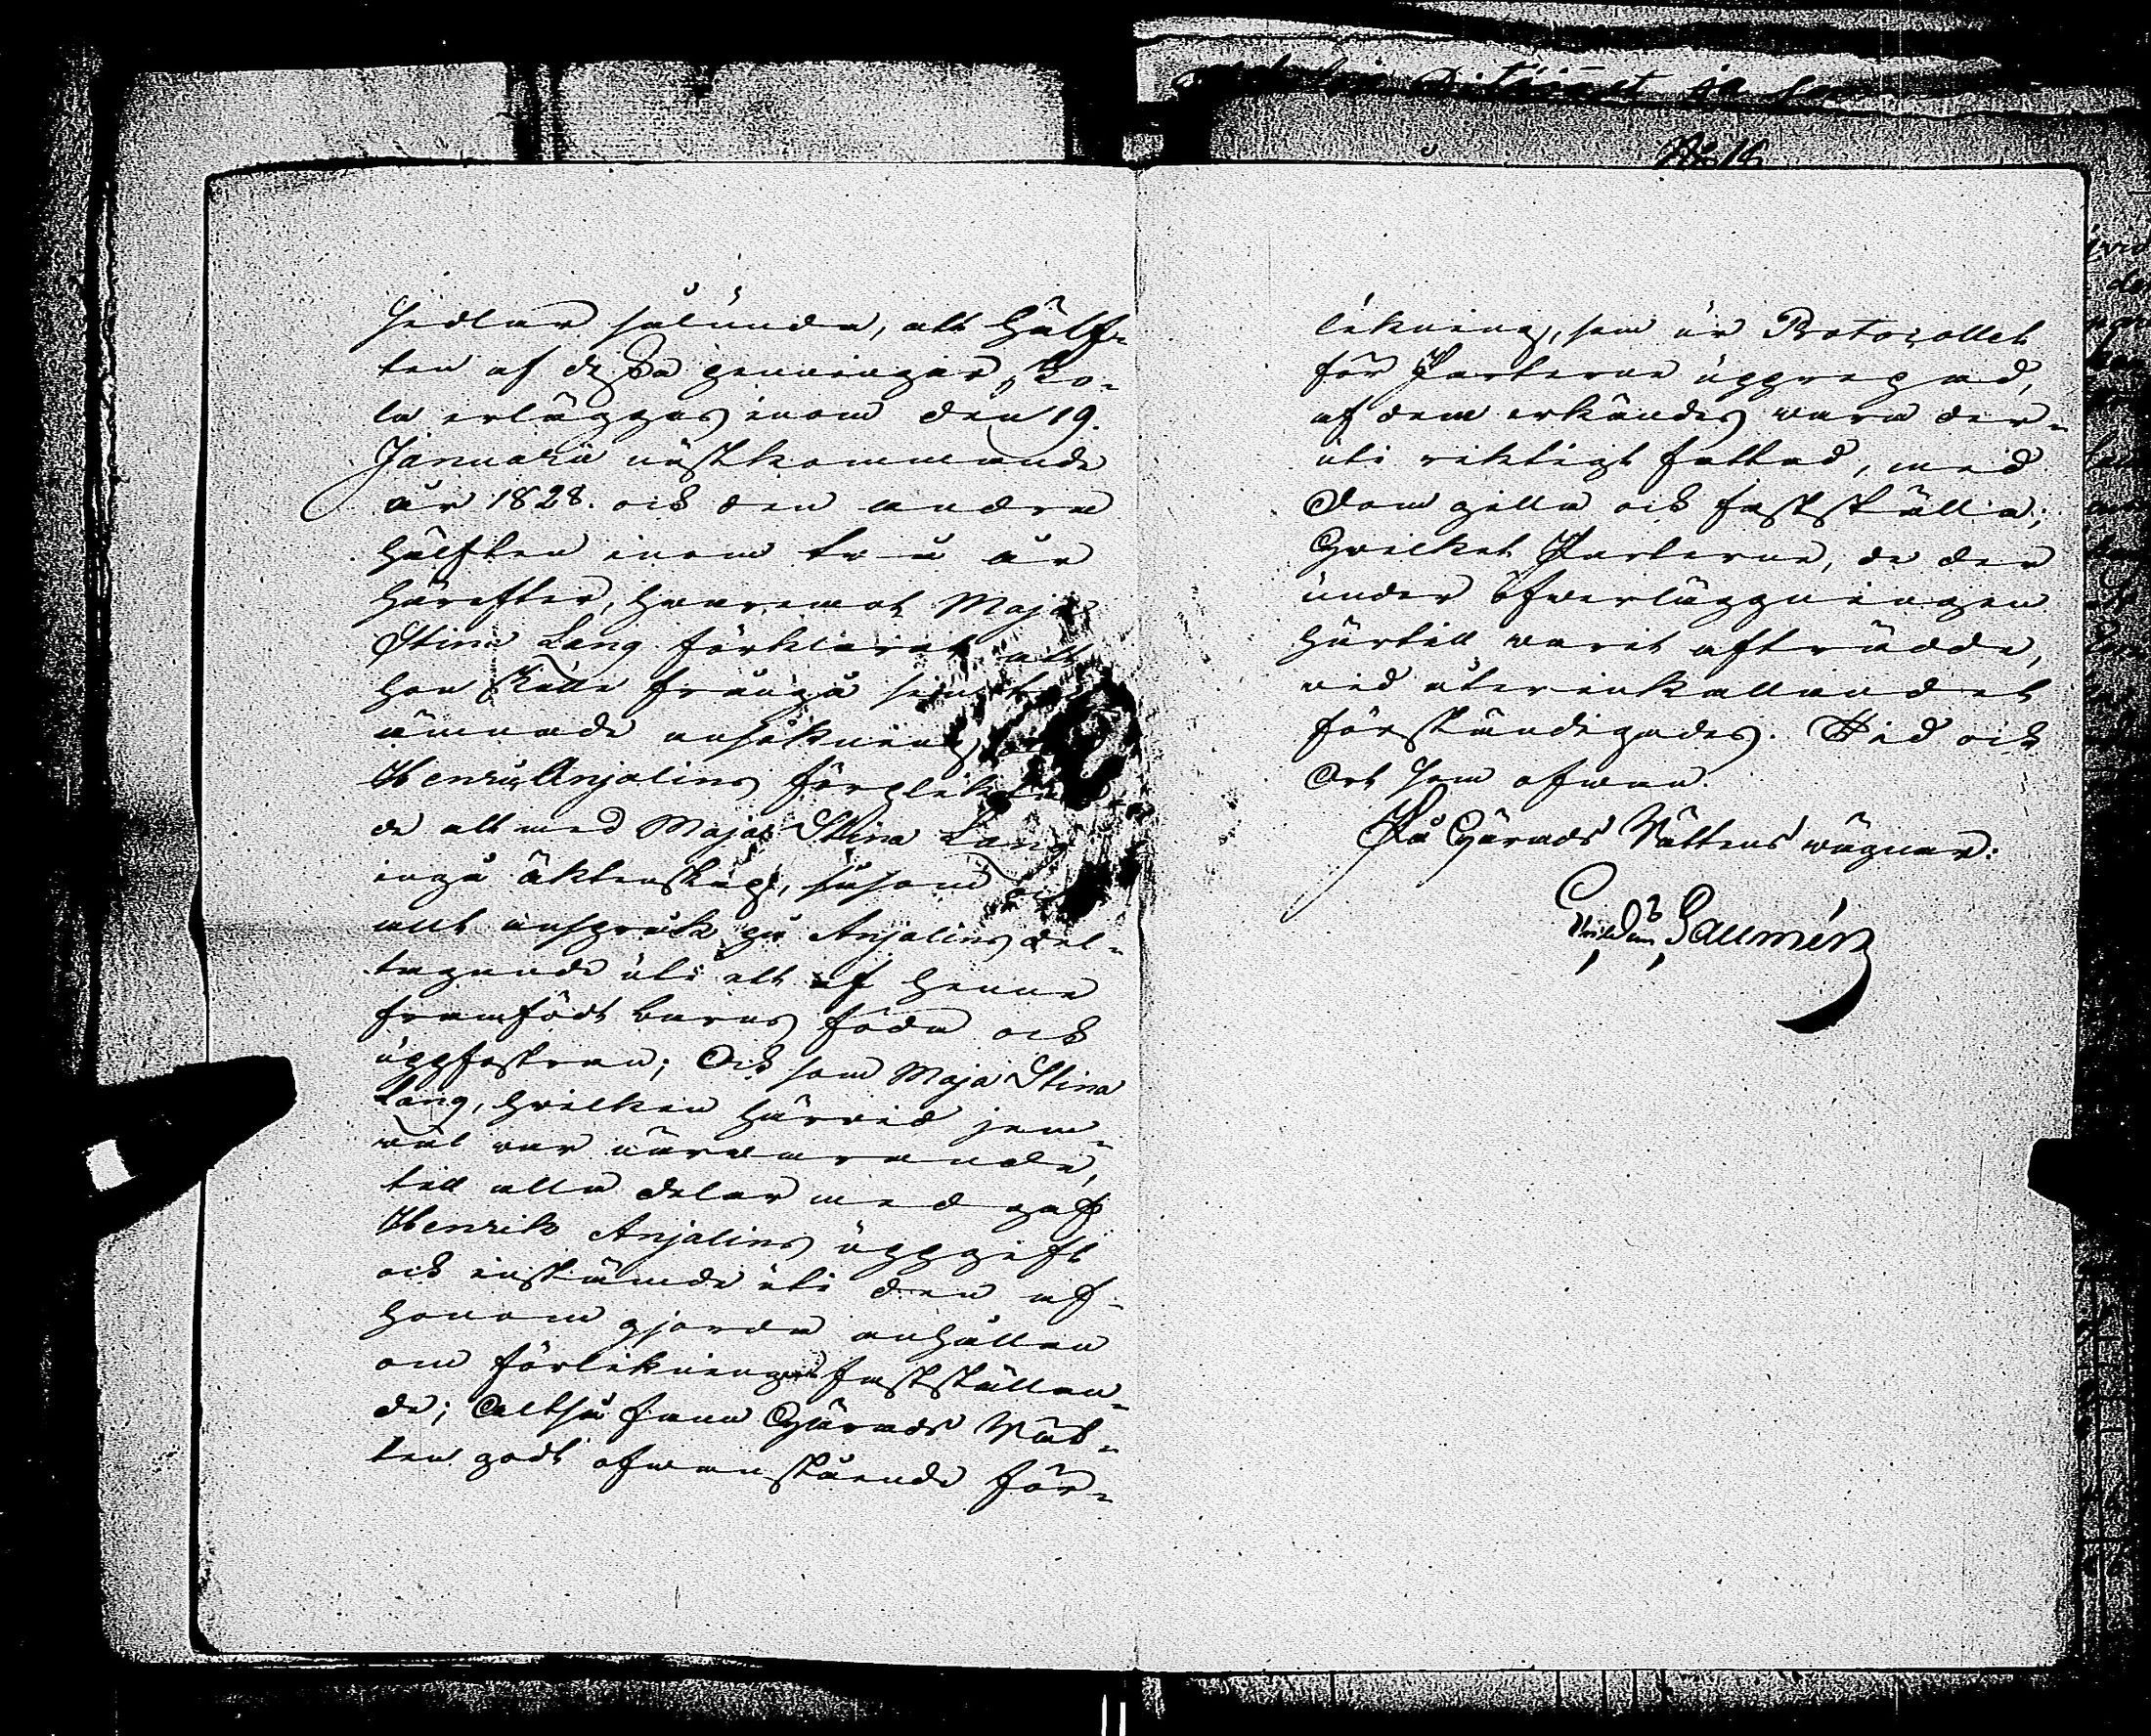 sedlar sålunda, att hälf-
ten af dessa penningar sko-
la erläggas inom den 19.
Januarii nästkommande
år 1828. och den andra
hälften inom två år
härefter, hvaremot Maja
Stina Lang förklarat att
hon skulle frångå
ämnade ansökning
Henric Anjalins förpligtan-
de att med Maja Stina Lang
ingå äktenskap, såsom
allt anspråk på Anjalins del-
tagande uti ett af henne
framfödt barns föda och
uppfostran; Och som Maja Stina
Lang, hvilken härvid jem-
väl var närvarande,
till alla delar medgaf
Henrik Anjalins uppgift
och instämde uti den af
honom gjorda anhållan
om förlikningens fastställan-
de; Altså fann Härads Rät-
ten godt ofvanstående för-
likning, som ur Protocollet
för Parterne upprepad,
af dem erkändes vara der-
uti riktigt fattad, med
Dom gilla och fastställa;
Hvilket Parterne, de der
under öfverläggningen
härtill varit afträdde,
vid återinkallandet
förständigades. Tid och
Ort som ofvan.
På Härads Rättens vägnar:
Gaumén